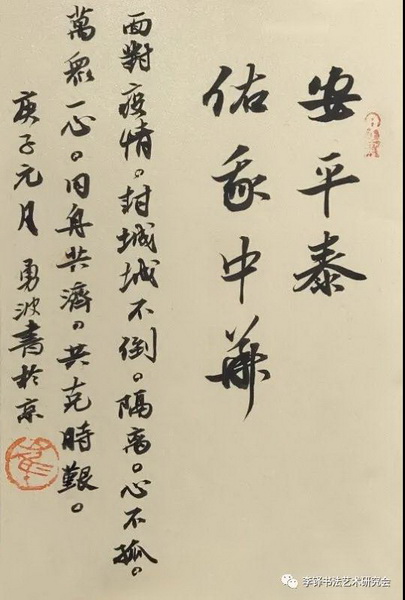 安平泰
佑我中华
面對疫情。封城城不倒。隔离。心不孤。
萬眾一心。同舟共濟。共克時艱。
庚子元月 勇波書於京
李铎书法艺术研究会